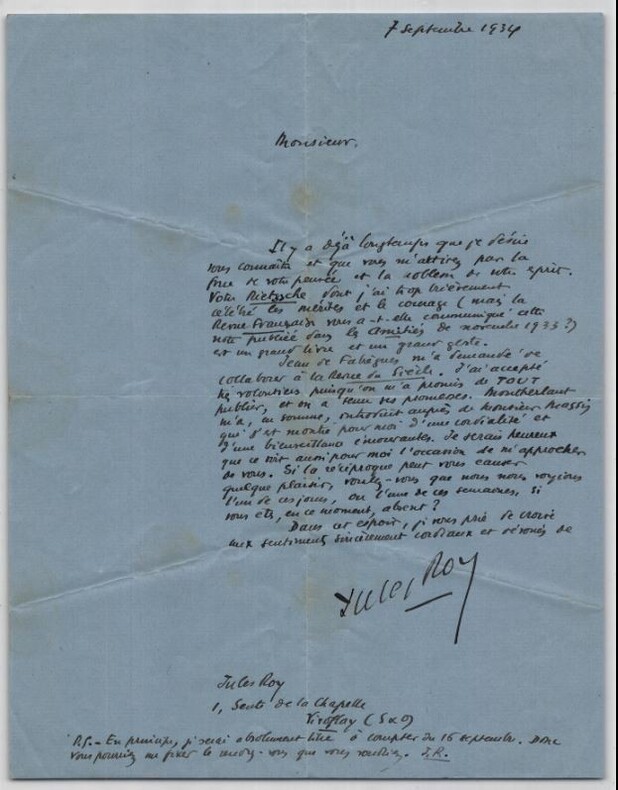 7 Septembre 1934
Monsieur.
Il y a déjà longtemps que je désire
vous connaître et que vous m'attirez par la
force de votre pensée et la noblesse de votre esprit.
Votre Nietzsche dont j'ai trop brièvement
célébré les mérites et le courage (mais la
Revue Française vous a-t-elle communiqué cette
note publiée dans les Amitiés de novembre 1933?)
est un grand livre et un grand geste.
Jean de Fabrègues m'a demandé de
collaborer à la Revue du Siècle. J'ai accepté
volontiers puisqu'on m'a promis de TOUT
publier, et on a tenu ses promesses. Montherlant
m'a, en somme, introduit auprès de Monsieur Massis
qui s'est montré pour moi d'une cordialité et
d'une bienveillance émouvantes. Je serais heureux
que ce soit aussi pour moi l'occasion de m'approcher
de vous. Si la réciproque peut vous causer
quelque plaisir, voulez-vous que nous nous voyions
l'un de ces jours, ou l'une de ces semaines, si
vous êtes, en ce moment, absent?
Dans cet espoir, je vous prie de croire
aux sentiments sincèrement cordiaux et dévoués de
Jules Roy
Jules Roy
1, Sente de la Chapelle
Viroflay (S&O)
P.S. - En principe, je serai absolument libre à compter du 16 septembre. Donc
vous pourriez me fixer le rendez-vous que vous voudriez. J.R.